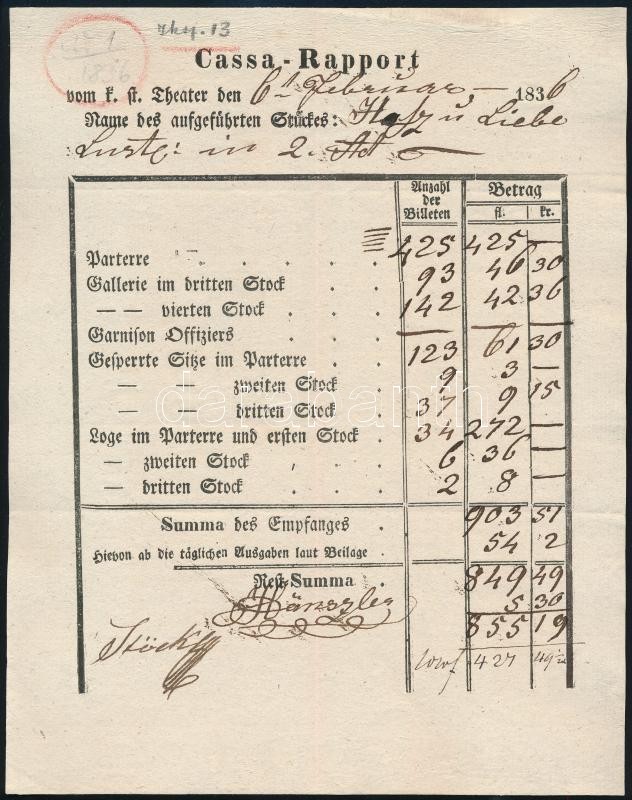 Nº 1
1836
zksg. 13
Cassa-Rapport
vom k. st. Theater den 6t Februar 1836
Name des aufgeführten Stückes: Haß u Liebe
Lustsp: in 2. Act
Anzahl der Billeten Betrag
fl. kr.
Parterre 425 425 —
Gallerie im dritten Stock 93 46 30
— — vierten Stock 142 42 36
Garnison Offiziers — — —
Gesperrte Sitze im Parterre 123 61 30
— — zweiten Stock 9 3 —
— — dritten Stock 37 9 15
Loge im Parterre und ersten Stock 34 272 —
— zweiten Stock 6 36 —
— dritten Stock 2 8 —
Summa des Empfanges 903 51
Hievon ab die täglichen Ausgaben laut Beilage 54 2
Rest-Summa 849 49
5 30
Hänszler 855 19
Stöckl
427 49½
darabanth